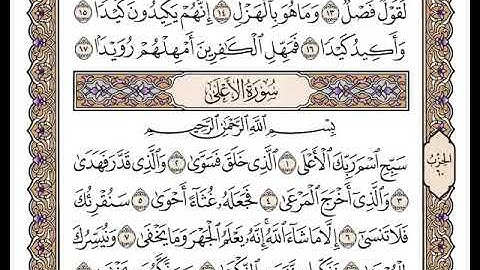 لَقَوْلٌ فَصْلٌ ۝١٣ وَمَا هُوَ بِٱلْهَزْلِ ۝١٤ إِنَّهُمْ يَكِيدُونَ كَيْدًا ۝١٥
وَأَكِيدُ كَيْدًا ۝١٦ فَمَهِّلِ ٱلْكَٰفِرِينَ أَمْهِلْهُمْ رُوَيْدًا ۝١٧
سُورَةُ الأَعْلَىٰ
بِسْمِ ٱللَّهِ ٱلرَّحْمَٰنِ ٱلرَّحِيمِ
سَبِّحِ ٱسْمَ رَبِّكَ ٱلْأَعْلَى ۝١ ٱلَّذِى خَلَقَ فَسَوَّىٰ ۝٢ وَٱلَّذِى قَدَّرَ فَهَدَىٰ
۝٣ وَٱلَّذِىٓ أَخْرَجَ ٱلْمَرْعَىٰ ۝٤ فَجَعَلَهُۥ غُثَآءً أَحْوَىٰ ۝٥ سَنُقْرِئُكَ
فَلَا تَنسَىٰٓ ۝٦ إِلَّا مَا شَآءَ ٱللَّهُ إِنَّهُۥ يَعْلَمُ ٱلْجَهْرَ وَمَا يَخْفَىٰ ۝٧ وَنُيَسِّرُكَ
الحِزْبُ
٦٠